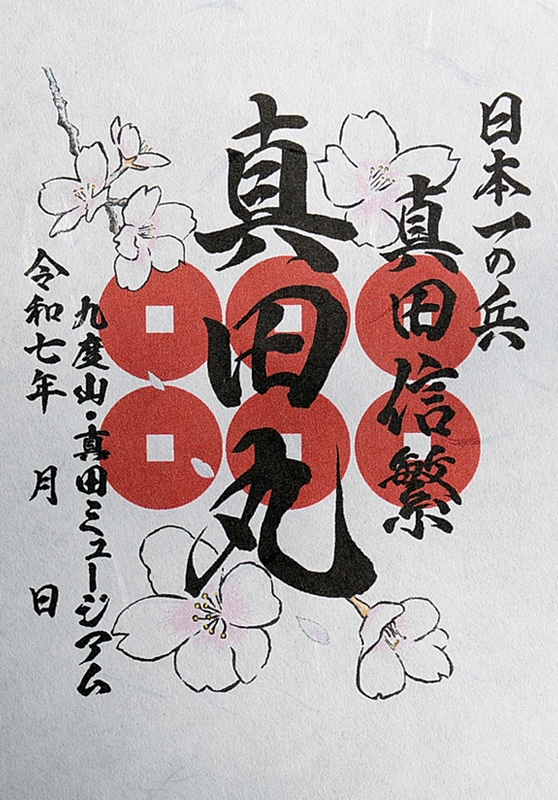 日本一の兵
真田信繁
真田丸
九度山・真田ミュージアム
令和七年　月　日